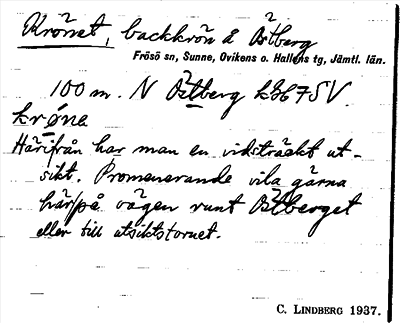 Krönet, backkrön å Östberg
Frösö sn, Sunne, Ovikens o. Hallens tg, Jämtl. län.
100 m. N Östberg k867SV.
krøna
Härifrån har man en vidsträckt ut-
sikt. Promenerande vila gärna
här på vägen runt Östberget
eller till utsiktstornet.
C. LINDBERG 1937.